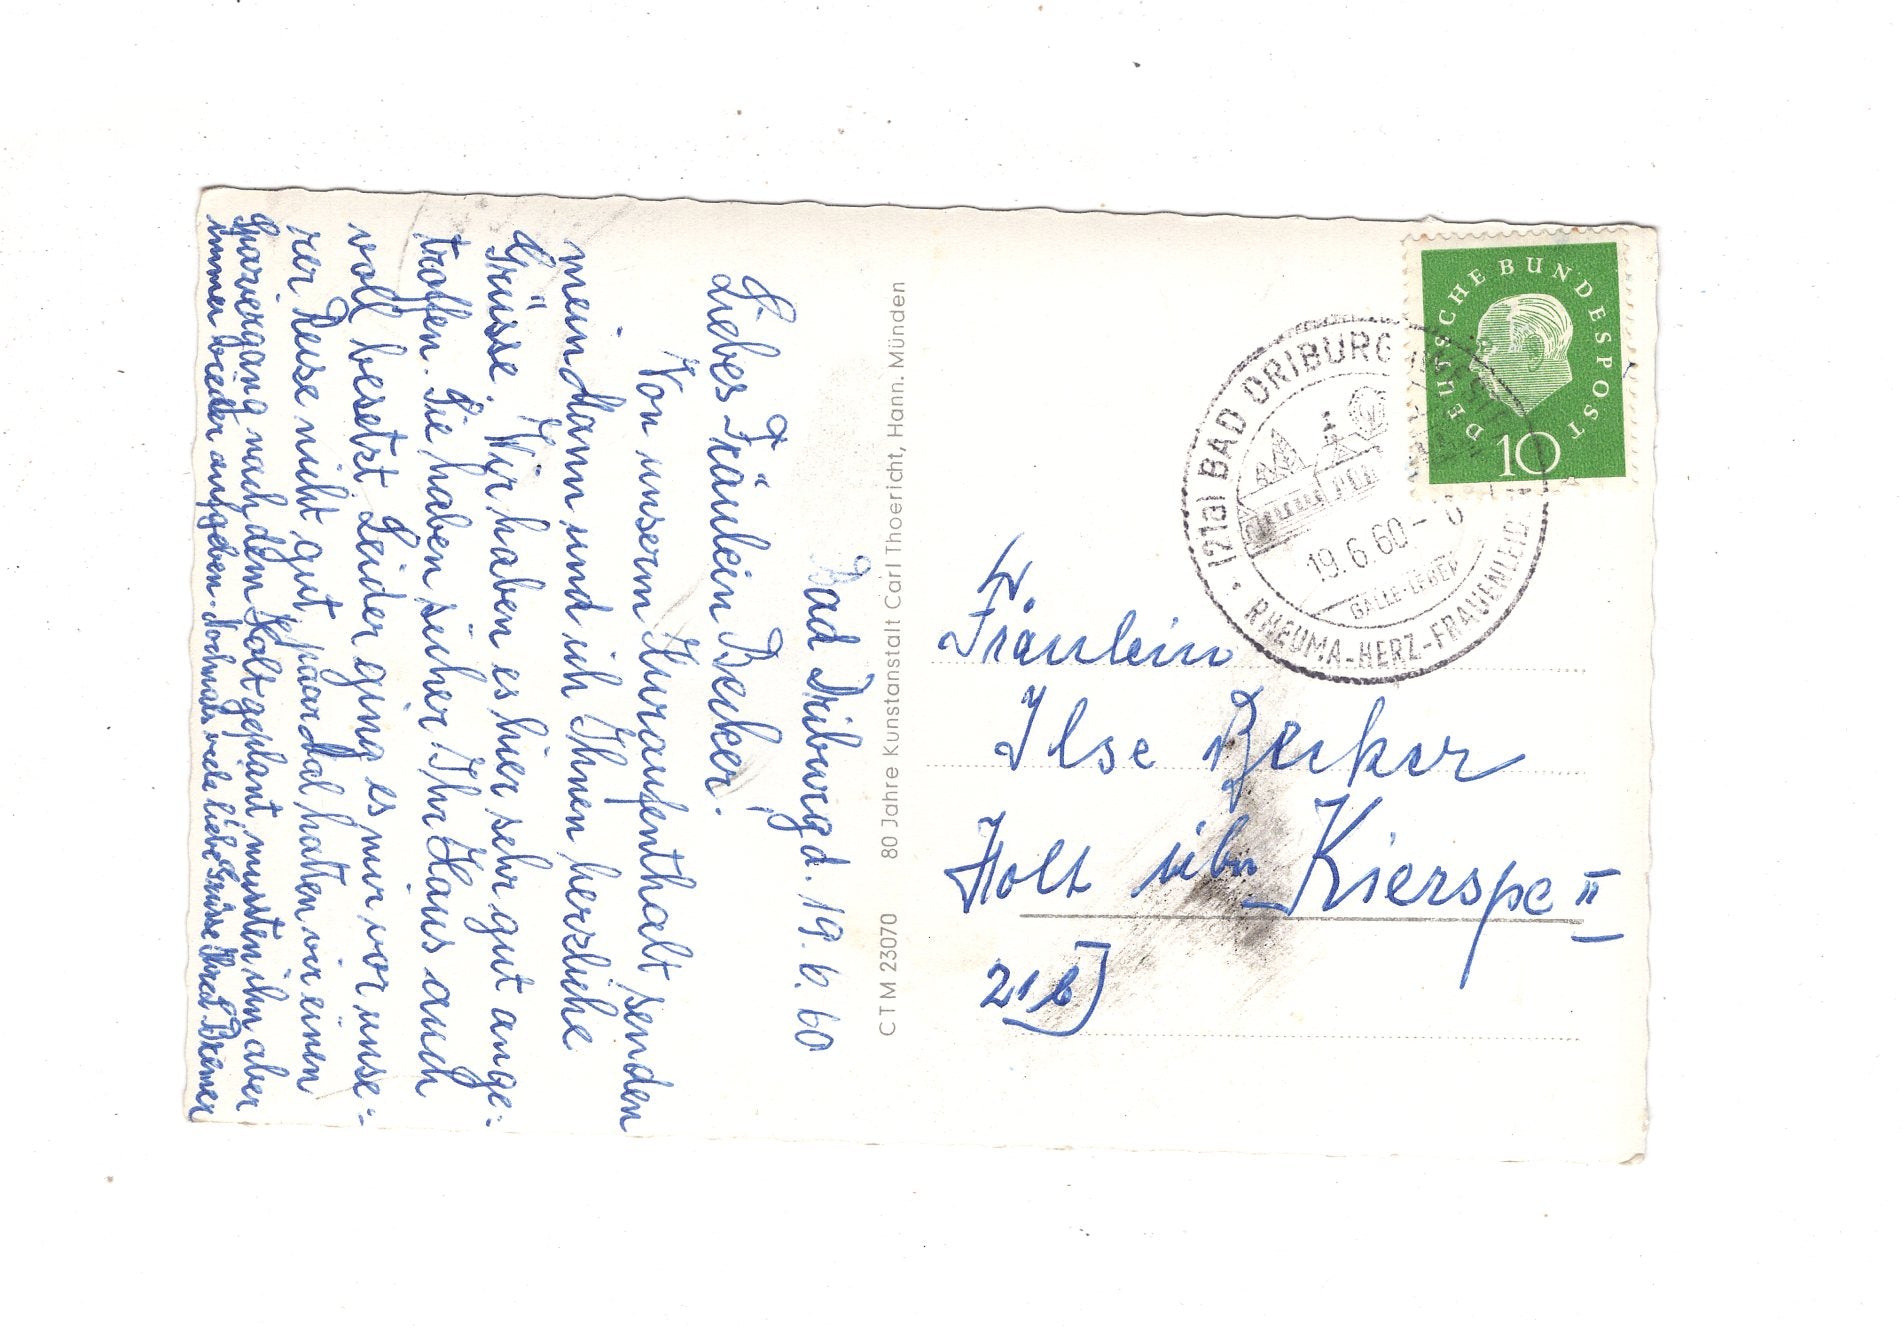 Bad Driburg d. 19.6.60
Liebes Fräulein Becker!
Von unserm Kuraufenthalt senden
mein Mann und ich Ihnen herzliche
Grüsse. Wir haben es hier sehr gut ange-
troffen. Sie haben sicher Ihr Haus auch
voll besetzt. Leider ging es mir vor unse-
rer Reise nicht gut, paar Mal hatten wir einen
Spaziergang nach dem Holt geplant, mussten ihn aber
immer wieder aufgeben. Nochmals viele liebe Grüsse
CTM 23070 80 Jahre Kunstanstalt Carl Thoericht, Hann. Münden
DEUTSCHE BUNDESPOST
10
(21a) BAD DRIBURG
19.6.60-
GALLE-LEBER
RHEUMA-HERZ-FRAUENLEID
Fr.
Fräulein
Ilse Becker
Holt über Kierspe II
21b)